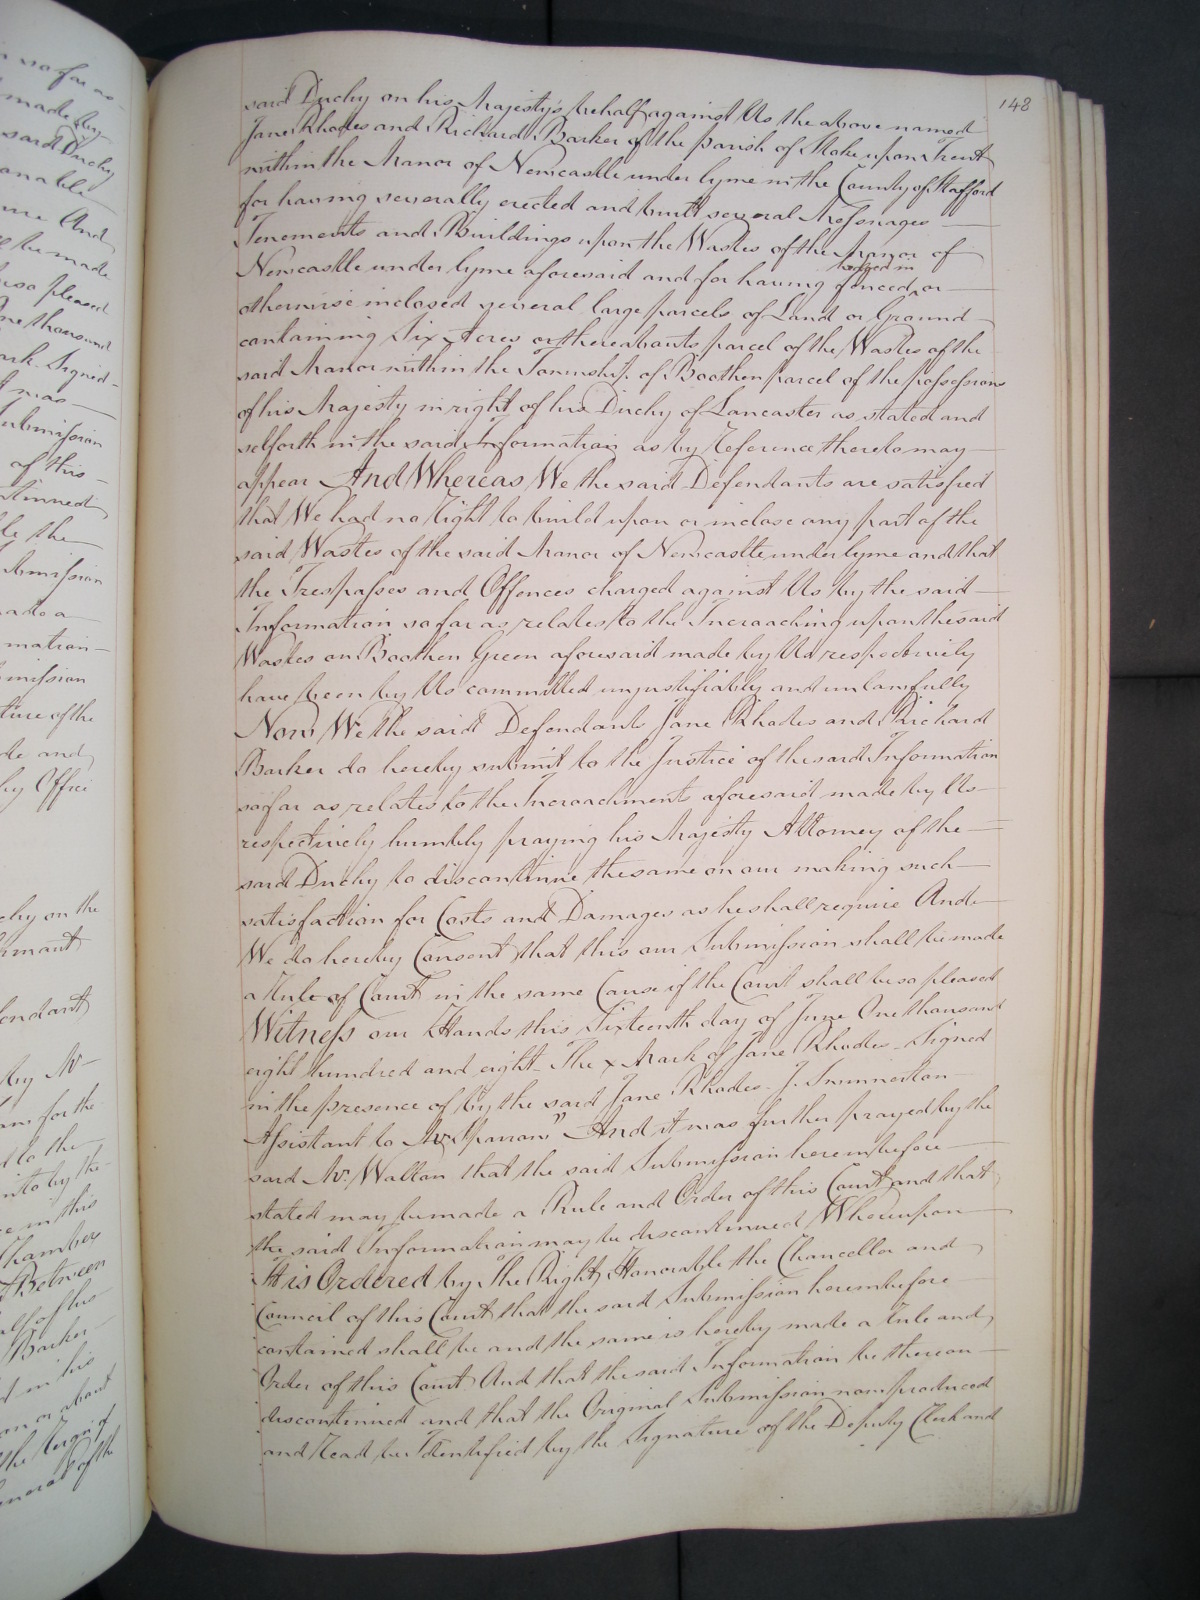 148
said Duchy on his Majesty's behalf against Us the above named
Jane Rhodes and Richard Barker of the parish of Stoke upon Trent
within the Manor of Newcastle under lyme in the County of Stafford
for having severally erected and built several Messuages
Tenements and Buildings upon the Wastes of the Manor of
Newcastle under lyme aforesaid and for having fenced or
otherwise inclosed several large parcels of Land or Ground
containing Six Acres or thereabouts parcel of the Wastes of the
said Manor within the Township of Boothen parcel of the possessions
of his Majesty in right of his Duchy of Lancaster as stated and
setforth in the said Information as by Reference thereto may
appear And Whereas We the said Defendants are satisfied
that We had no Right to build upon or inclose any part of the
said Wastes of the said Manor of Newcastle under lyme and that
the Trespasses and Offences charged against Us by the said
Information so far as relates to the Incroaching upon the said
Wastes on Boothen Green aforesaid made by Us respectively
have been by Us committed unjustifiably and unlawfully
Now We the said Defendants Jane Rhodes and Richard
Barker do hereby submit to the Justice of the said Information
so far as relates to the Incroachments aforesaid made by Us
respectively humbly praying his Majesty Attorney of the
said Duchy to discontinue the same on our making such
satisfaction for Costs and Damages as he shall require And
We do hereby Consent that this our Submission shall be made
a Rule of Court in the same Cause if the Court shall be so pleased
Witness our Hands this Sixteenth day of June One thousand
eight hundred and eight The x Mark of Jane Rhodes - Signed
in the presence of by the said Jane Rhodes. J.
Assistant to Mr. Sparrow" And it was further prayed by the
said Mr. Walton that the said Submission hereinbefore
stated may be made a Rule and Order of this Court and that
the said Information may be discontinued Whereupon
It is Ordered by The Right Honorable the Chancellor and
Council of this Court that the said Submission hereinbefore
contained shall be and the same is hereby made a Rule and
Order of this Court And that the said Information be thereon
discontinued and that the Original Submission now produced
and Read be Identified by the Signature of the Deputy Clerk and